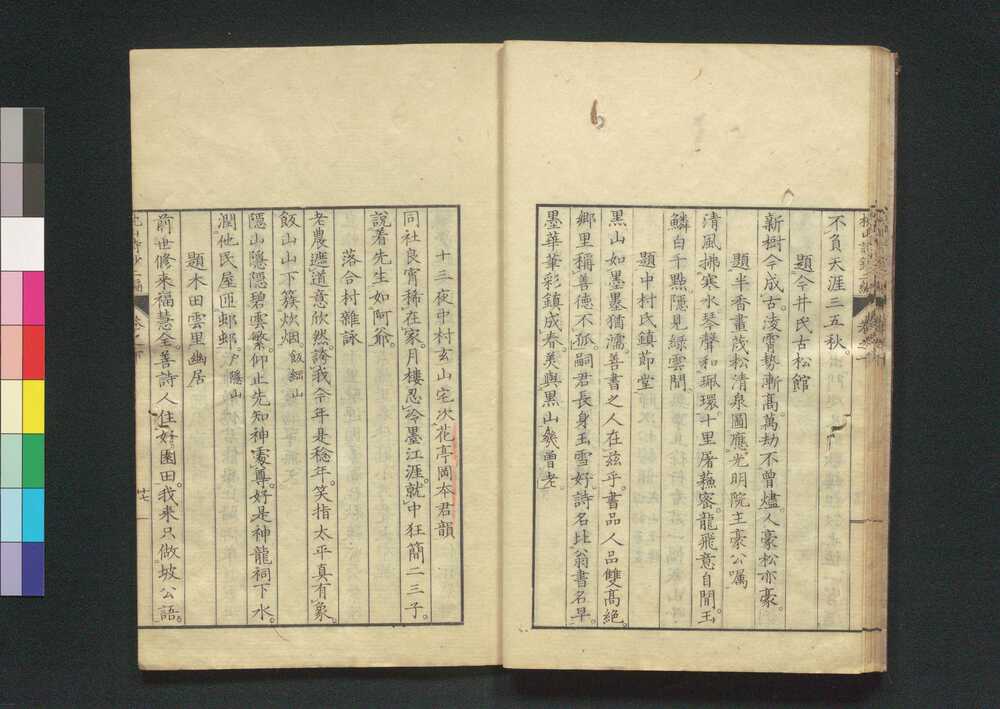 不負天涯三五秋。
題今井氏古松館
新樹今成古。凌霄勢漸髙。萬劫不曾燼。人豪松亦豪。
題半香畫茂松清泉圖應光明院主豪公囑
清風拂寒水。琴聲和珮環。十里屠蘓密。龍飛意自閒。玉
鱗白千點。隱見綠雲間。
題中村氏鎮節堂
黑山如墨墨猶濡。善書之人在茲乎。書品人品雙髙絕。
鄉里稱善德不孤。嗣君長身玉雪好。詩名比翁書名早。
墨華筆彩鎮成春。奚與黑山幾曾老
十三夜中村玄山宅次花亭岡本君韻
同社良宵稀在家。月樓忍冷墨江涯。就中狂簡二三子。
說着先生如阿爺。
落合村雜詠
老農遮道意欣然。誇我今年是稔年。笑指太平真有象。
飯山山下簇炊烟。飯繩山
隱山隱隱碧雲繁。仰止先知神處尊。好是神龍祠下水。
潤他民屋匝邨邨。戶隱山
題木田雲里幽居
前世修来福慧全。善詩人住好園田。我来只做坡公語。